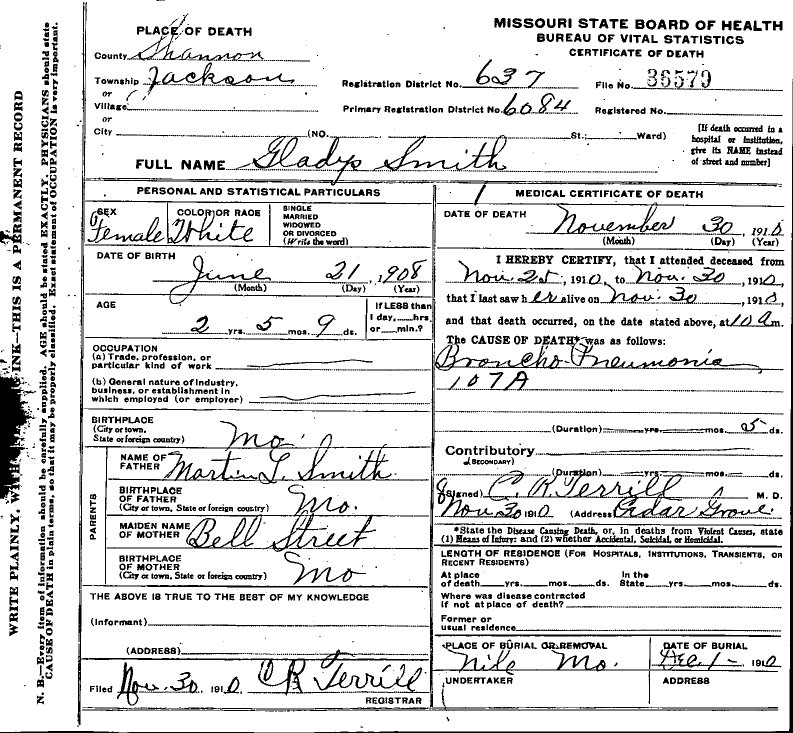 MISSOURI STATE BOARD OF HEALTH
BUREAU OF VITAL STATISTICS
CERTIFICATE OF DEATH
PLACE OF DEATH
County Shannon
Township Jackson
or
Village
or
City (NO. St.: Ward)
Registration District No. 637 File No. 36579
Primary Registration District No. 6084 Registered No.
[If death occurred in a
hospital or institution,
give its NAME instead
of street and number]
FULL NAME Gladys Smith
PERSONAL AND STATISTICAL PARTICULARS
SEX Female
COLOR OR RACE White
SINGLE
MARRIED
WIDOWED
OR DIVORCED
(Write the word)
DATE OF BIRTH
June 21, 1908
(Month) (Day) (Year)
AGE
2 yrs. 5 mos. 9 ds.
If LESS than
1 day, hrs.
or min.?
OCCUPATION
(a) Trade, profession, or
particular kind of work
(b) General nature of industry,
business, or establishment in
which employed (or employer)
BIRTHPLACE
(City or town,
State or foreign country) Mo.
PARENTS
NAME OF
FATHER Martin L. Smith
BIRTHPLACE
OF FATHER
(City or town, State or foreign country) Mo.
MAIDEN NAME
OF MOTHER Bell Street
BIRTHPLACE
OF MOTHER
(City or town, State or foreign country) Mo
THE ABOVE IS TRUE TO THE BEST OF MY KNOWLEDGE
(Informant)
(ADDRESS)
Filed Nov. 30 1910 C R Terrill
REGISTRAR
MEDICAL CERTIFICATE OF DEATH
DATE OF DEATH November 30, 1910
(Month) (Day) (Year)
I HEREBY CERTIFY, that I attended deceased from
Nov. 25, 1910, to Nov. 30, 1910,
that I last saw her alive on Nov. 30, 1910,
and that death occurred, on the date stated above, at 10 a m.
The CAUSE OF DEATH* was as follows:
Broncho Pneumonia
107A
(Duration) yrs. mos. 5 ds.
Contributory
(SECONDARY)
(Duration) yrs. mos. ds.
(Signed) C. R. Terrill M. D.
Nov. 30 1910 (Address) Cedar Grove
*State the Disease Causing Death, or, in deaths from Violent Causes, state
(1) Means of Injury; and (2) whether Accidental, Suicidal, or Homicidal.
LENGTH OF RESIDENCE (FOR HOSPITALS, INSTITUTIONS, TRANSIENTS, OR
RECENT RESIDENTS)
At place
of death yrs. mos. ds.
In the
State yrs. mos. ds.
Where was disease contracted
if not at place of death?
Former or
usual residence
PLACE OF BURIAL OR REMOVAL
Nile Mo.
DATE OF BURIAL
Dec 1- 1910
UNDERTAKER
ADDRESS
WRITE PLAINLY, INK—THIS IS A PERMANENT RECORD
N. B.—Every item of information should be carefully supplied. AGE should be stated EXACTLY. PHYSICIANS should state
CAUSE OF DEATH in plain terms, so that it may be properly classified. Exact statement of OCCUPATION is very important.